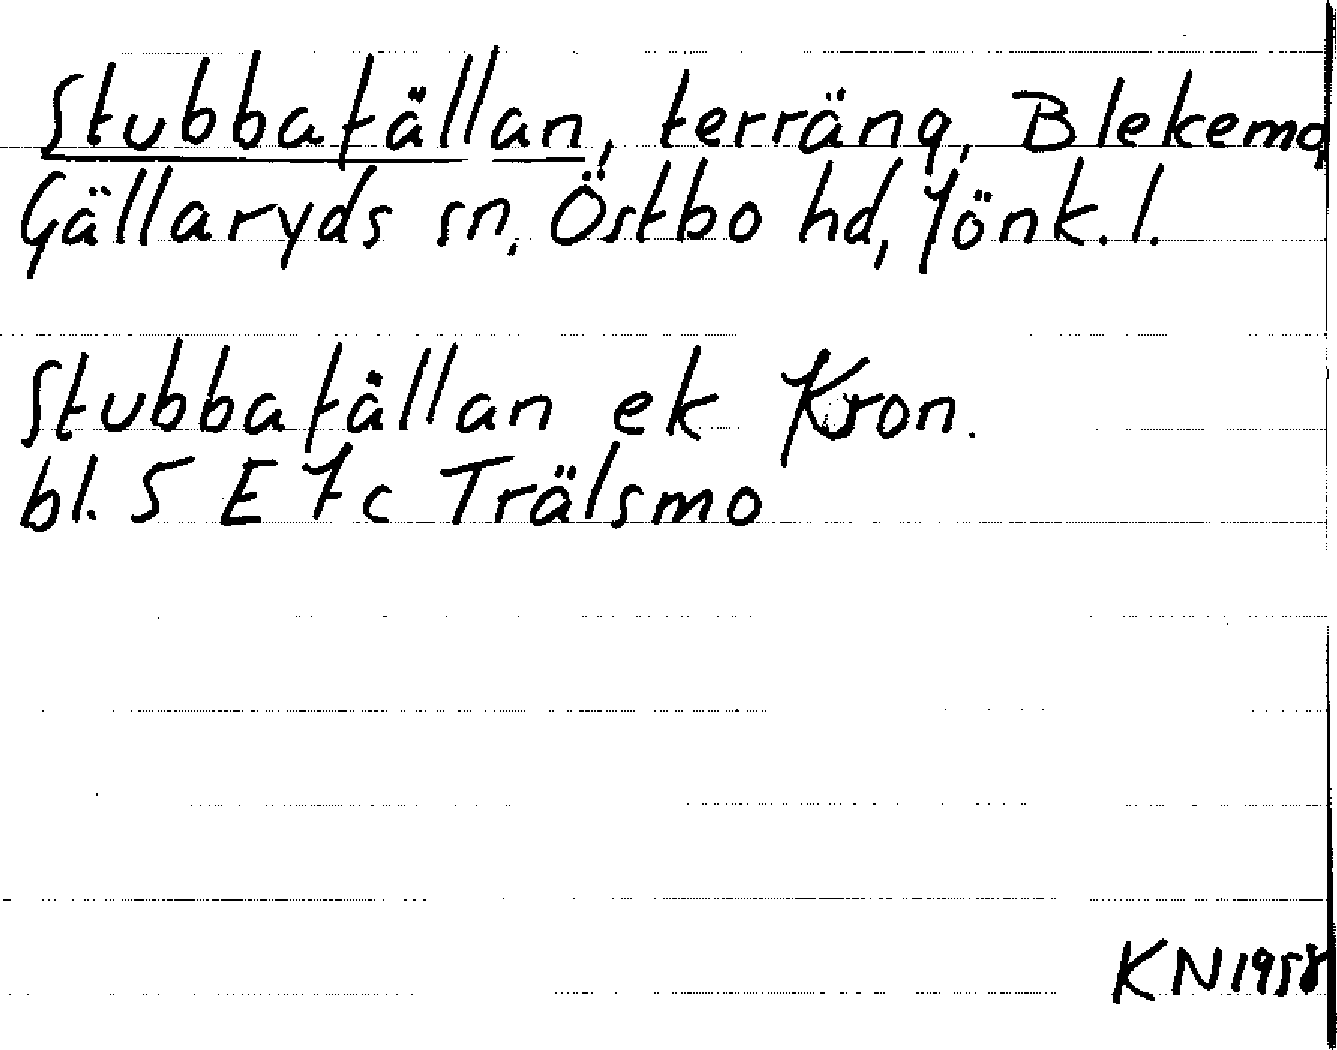 Stubbafällan, terräng, Blekemo,
Gällaryds sn, Östbo hd, Jönk. l.
Stubbafällan ek Kron.
bl. 5 E 7c Trälsmo
KN 1958